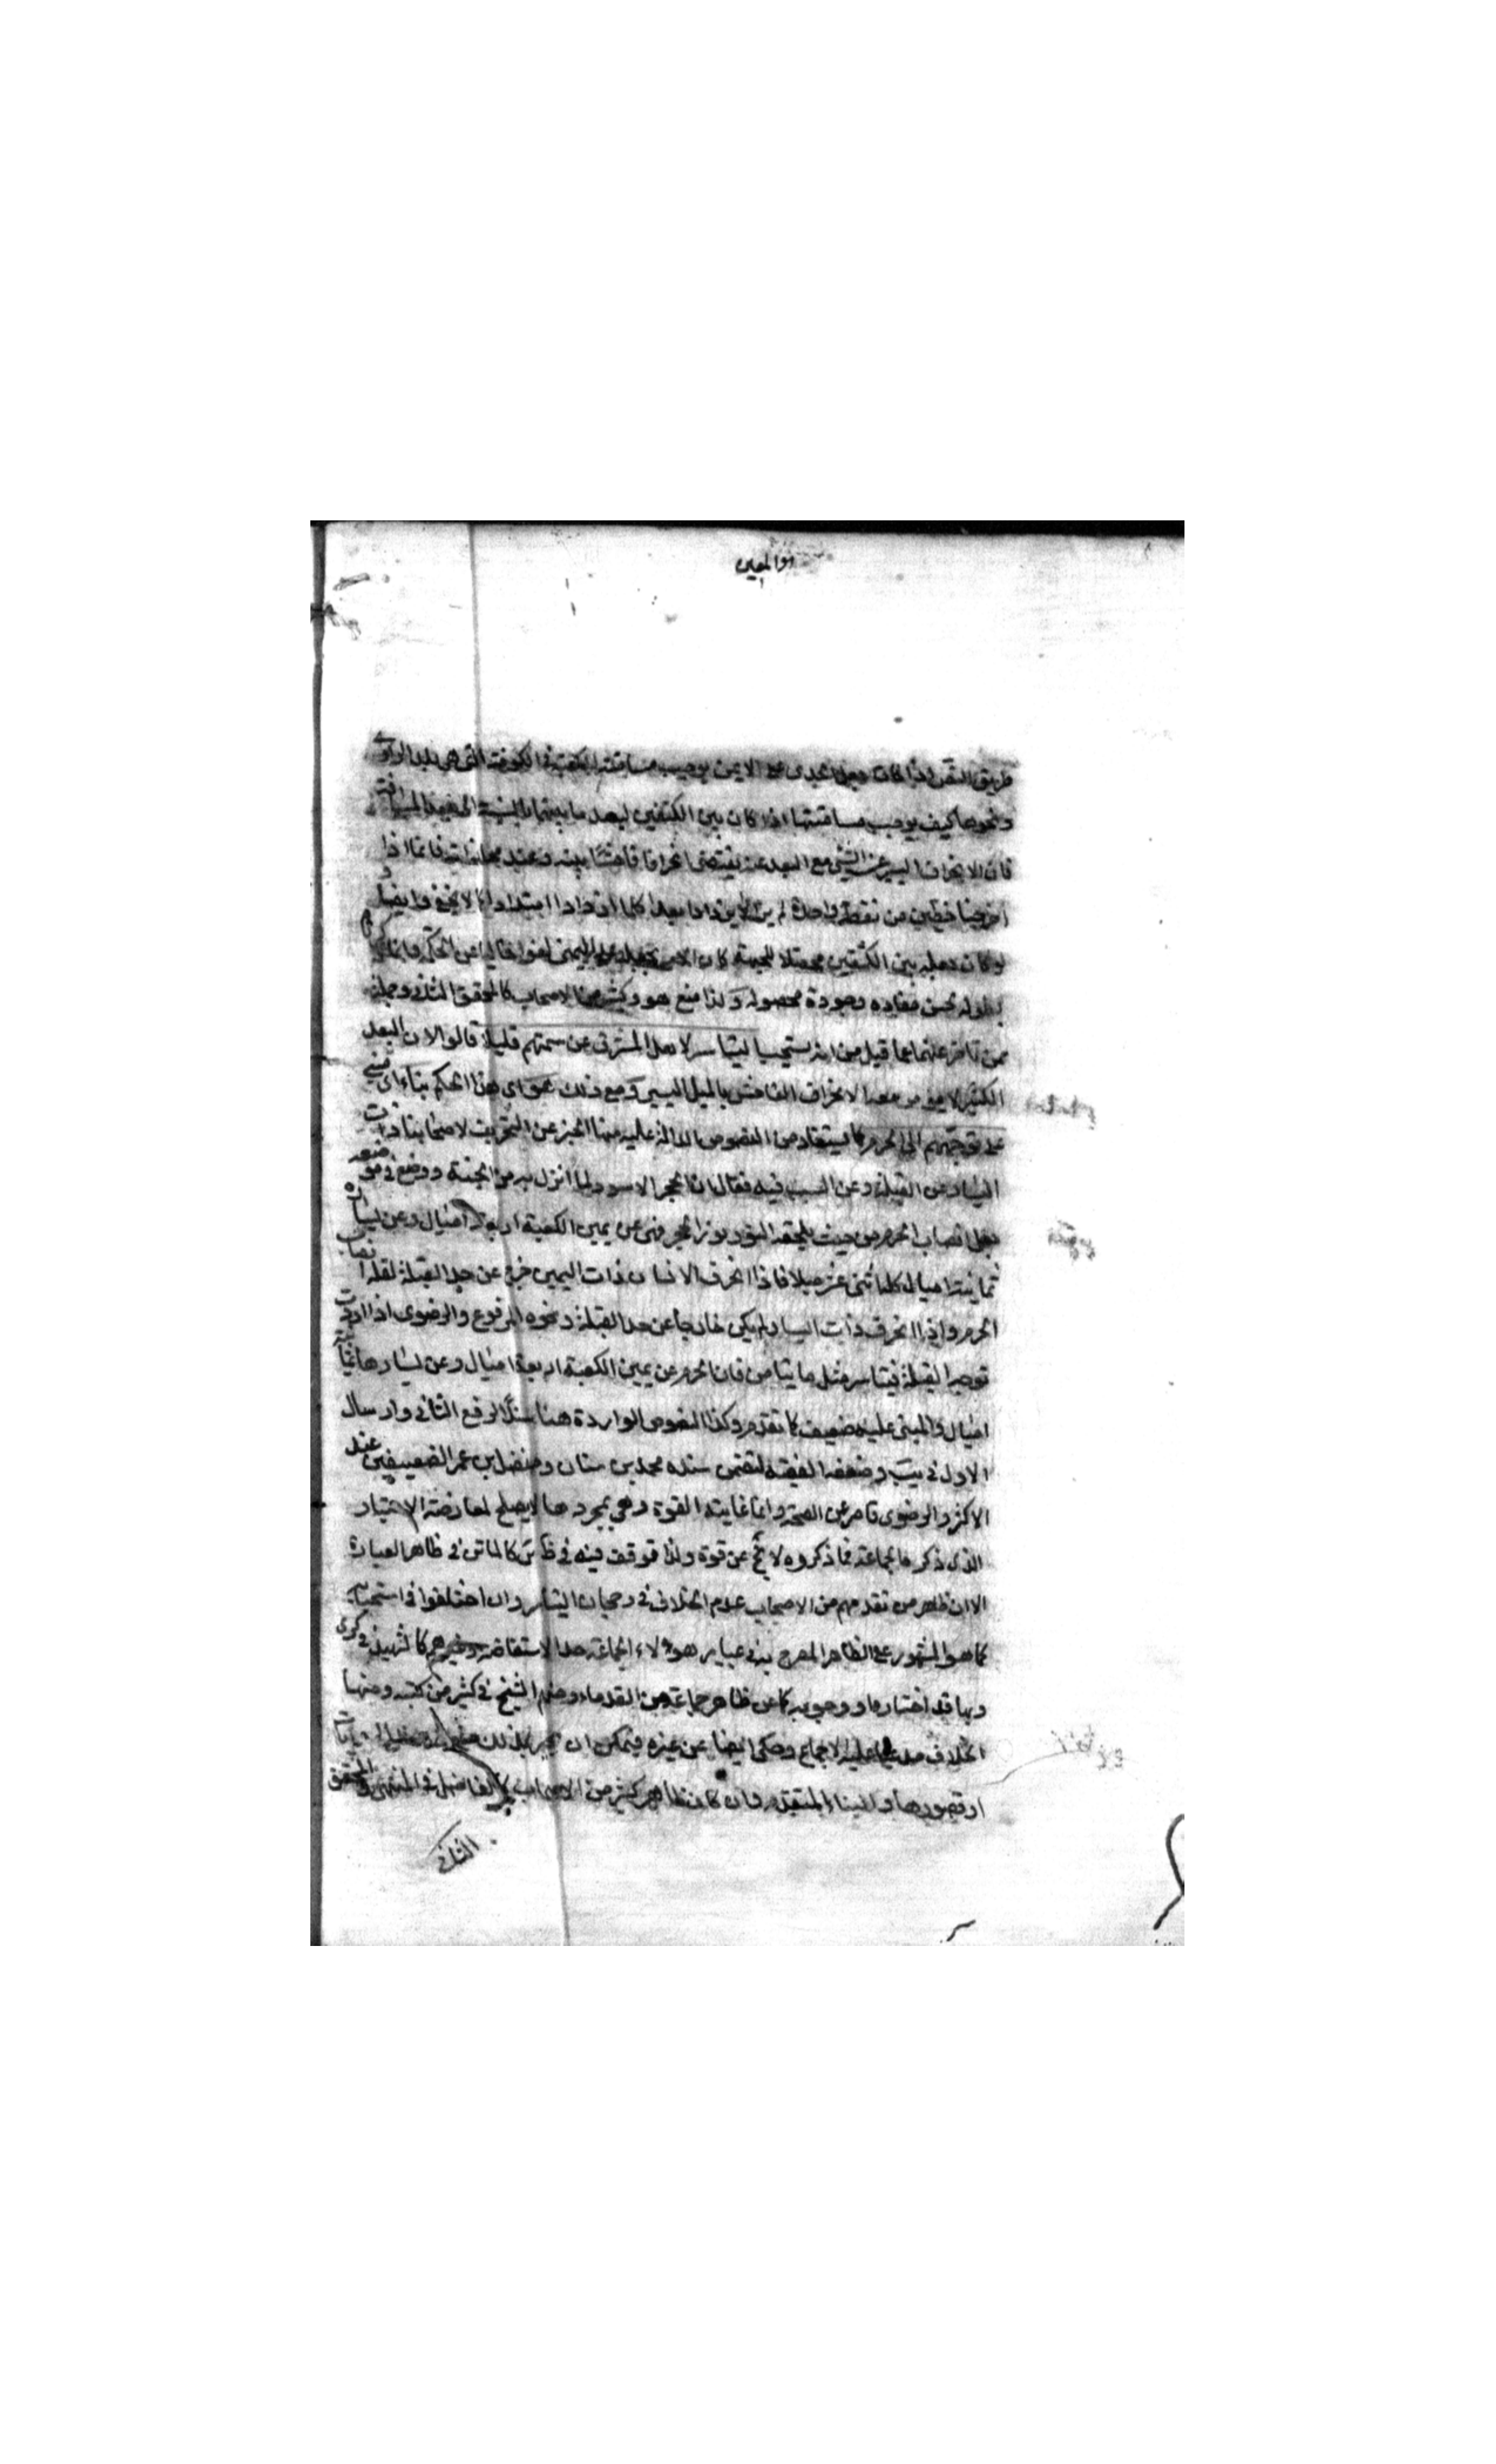 هو المعين
طريق النص اذا كان جعل الجدى على الايمن يوجب مسامتة الكعبة فى الكوفة التى هى بلد الراوى
ونحوها كيف يوجب مسامتتها اذا كان بين الكتفين لبعد ما بينهما بالنسبة الى هذه المسافة
فان الانحراف اليسير عن الشئ مع البعد عنه يقتضى انحرافا فاحشا بينه وعند محاذاته فانما اذا
اخرجنا خطين من نقطة واحدة لم يزالا يزدادا بعدا كلما ازدادا امتدادا كما لا يخفى وايضا
لو كان جعله بين الكتفين محصلا للجهة كان الامر بجعله على اليمنى لغوا خاليا عن الحكمة وانما
بطوله لحسن مفاده وجودة محصوله ولذا منع هو وكثير من الاصحاب كالمحقق الثانى وجملة
ممن تاخر عنهما عما قيل من انه يستحب التياسر لاهل المشرق عن سمتهم قليلا قالوا لان البعد
الكثير لا يؤمن معه الانحراف الفاحش بالميل اليسير ومع ذلك هو اى هذا الحكم بناء اى مبنى
على توجههم الى الحرم كما يستفاد من النصوص الدالة عليه منها الخبر عن التحريف لاصحابنا ذات
اليسار عن القبلة وعن السبب فيه فقال ان الحجر الاسود لما انزل به من الجنة ووضع فى موضعه
جعل انصاب الحرم من حيث يلحقه النور نور الحجر فهى عن يمين الكعبة اربعة اميال وعن يسارها
ثمانية اميال كلها اثنى عشر ميلا فاذا انحرف الانسان ذات اليمين خرج عن حد القبلة لقلة انصاب
الحرم واذا انحرف ذات اليسار لم يكن خارجا عن حد القبلة ونحوه المرفوع والرضوى اذا اردت
توجه القبلة فتياسر مثل ما تيامن فان الحرم عن يمين الكعبة اربعة اميال وعن يسارها ثمانية
اميال والمبنى عليه ضعيف كما تقدم وكذا النصوص الواردة هنا سندا لرفع الثانى وارسال
الاول فى يب وضعفه الفقيه لتضمن سنده محمد بن سنان ومفضل بن عمر الضعيفين عند
الاكثر والرضوى قاصر عن الصحة وانما غايته القوة وهى بمجردها لا يصلح لمعارضة الاعتبار
الذى ذكره الجماعة فما ذكروه لا يخ عن قوة ولذا توقف فيه فى كالماتن فى ظاهر العبارة
الا ان ظاهر من تقدمهم من الاصحاب عدم الخلاف فى رجحان التياسر وان اختلفوا فى استحبابه
كما هو المشهور على الظاهر المصرح به فى عباير هؤلاء الجماعة حد الاستفاضة وغيرهم كالشهيد فى كرى
وبها قد اختاره او وجوبه كما عن ظاهر جماعة من القدماء ومنهم الشيخ فى كثير من كتبه ومنها
الخلاف مدعيا عليه الاجماع وحكى ايضا عن غيره فيمكن ان يجبر بذلك
او قصورها والبناء المتقدم وان كان ظاهر كثير من الاصحاب كالفاضل فى المنتهى والمحقق
الثانى